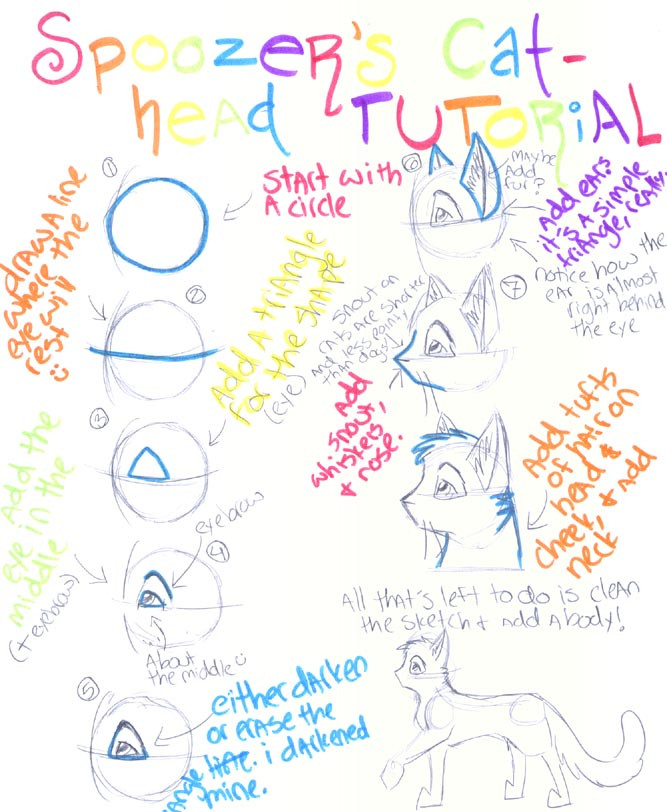 Spoozer's Cat-
head TUTORiAL
①
Start with
A circle
DRAW A line
where the
eye will
rest
②
Add A triangle
for the shape
(eye)
③
Add the
eye in the
middle
(+ eyebrow)
eyebrow
④
About
the middle
⑤
either darken
or erase the
angle line. i darkened
mine.
⑥
MAYbe
Add
fur?
Add ears
it's A simple
triangle, really.
notice how the
ear is almost
right behind
the eye
⑦
snout on
cats are shorter
And less pointy
than dogs!
Add
snout,
whiskers
+ nose.
Add tufts
of hair on
head &
cheek, + add
neck,
All that's left to do is clean
the sketch + Add A body!